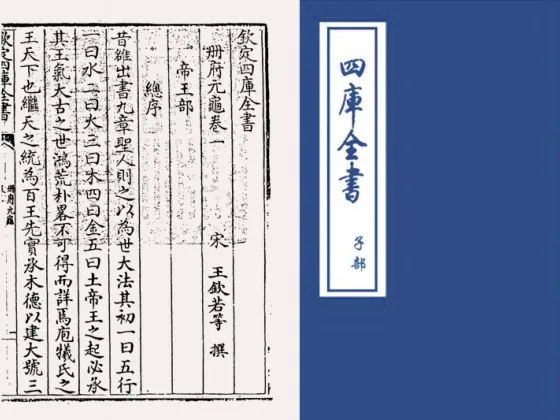 欽定四庫全書
冊府元龜卷一
宋 王欽若等 撰
帝王部
總序
昔雒出書九章聖人則之以為世大法其初一曰五行
一曰水二曰火三曰木四曰金五曰土帝王之起必承
其王氣大古之世鴻荒朴畧不可得而詳焉庖犧氏之
王天下也繼天之統為百王先實承木德以建大號三
欽定四庫全書
冊府元龜
四庫全書
子部